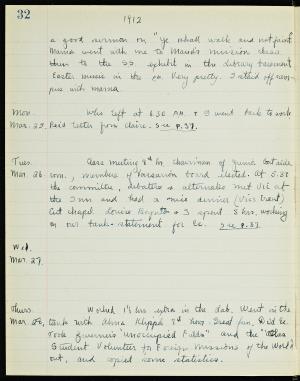 32
1912
a good sermon on "Ye shall walk and not faint
Mama went with me to Maud's mission class
then to the SS. exhibit in the library basement
Easter music in the Very pretty. I
with mama.
Mon. left at 6.30 A.M. & I went back to work
Mar. 25. Rec'd letter from Claire. See p. 37.
Tues. Class meeting 8th hr. chairman of
Mar. 26 com., members of board elected. At 5.30
the committee, debaters & alternates met at
the Inn and had a nice dinner
Cut chapel Louise Boynton & I spent 8 hrs. working
on our tank-statement for Ec. See p. 37
Wed.
Mar. 27.
Thurs. Worked 1½ hrs extra in the lab. Went in the
Mar. 28, tank with 7th hour. Great fun. Did Ec.
"Unoccupied Fields" and the "Atlas
Student Volunteer for Foreign Missions of the World
out, and copied some statistics.